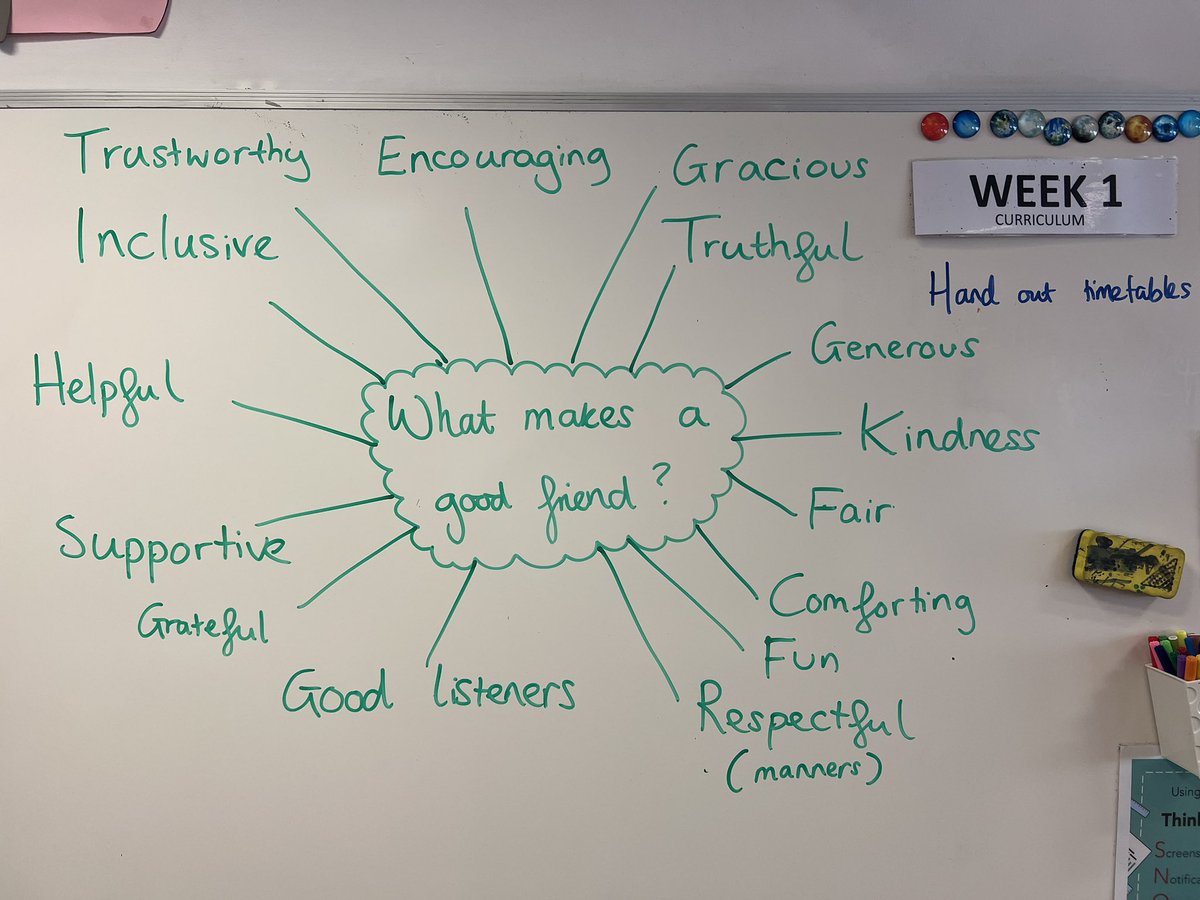 Trustworthy
Encouraging
Gracious
Inclusive
Truthful
WEEK 1
CURRICULUM
Hand out timetables
Helpful
Generous
What makes a
good friend?
Kindness
Fair
Supportive
Comforting
Grateful
Fun
Good listeners
Respectful
(manners)
Using
Think
Screens